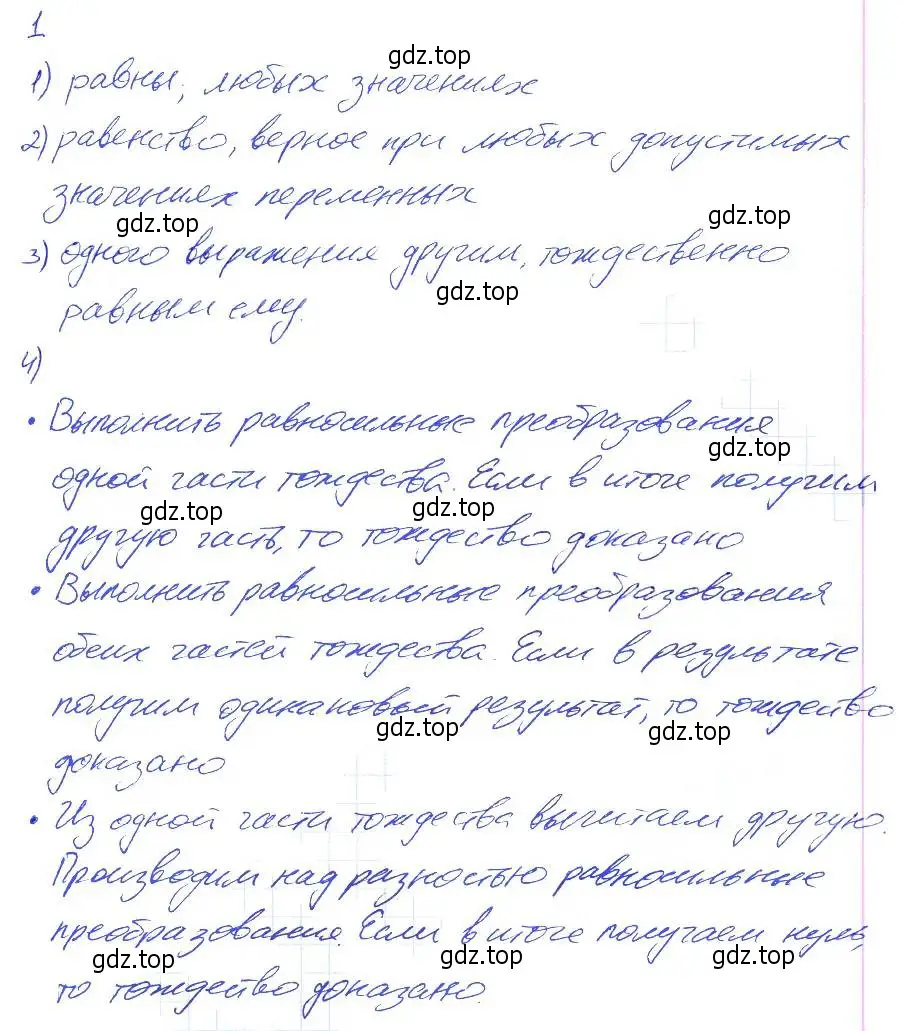 1
gdz.top
1) равны; любых значениях
2) равенство, верное при любых допустимых
значениях переменных
gdz.top
gdz.top
3) одного выражения другим, тождественно
gdz.top
равным ему.
4)
• Выполнить равносильные преобразования
gdz.top
одной части тождества. Если в итоге получим
gdz.top
gdz.top
другую часть, то тождество доказано
• Выполнить равносильные преобразования
обеих частей тождества. Если в результате
получим одинаковый результат, то тождество
gdz.top
gdz.top
доказано
• Из одной части тождества вычитаем другую.
Производим над разностью равносильные
преобразования. Если в итоге получаем нуль,
gdz.top
gdz.top
gdz.top
то тождество доказано.